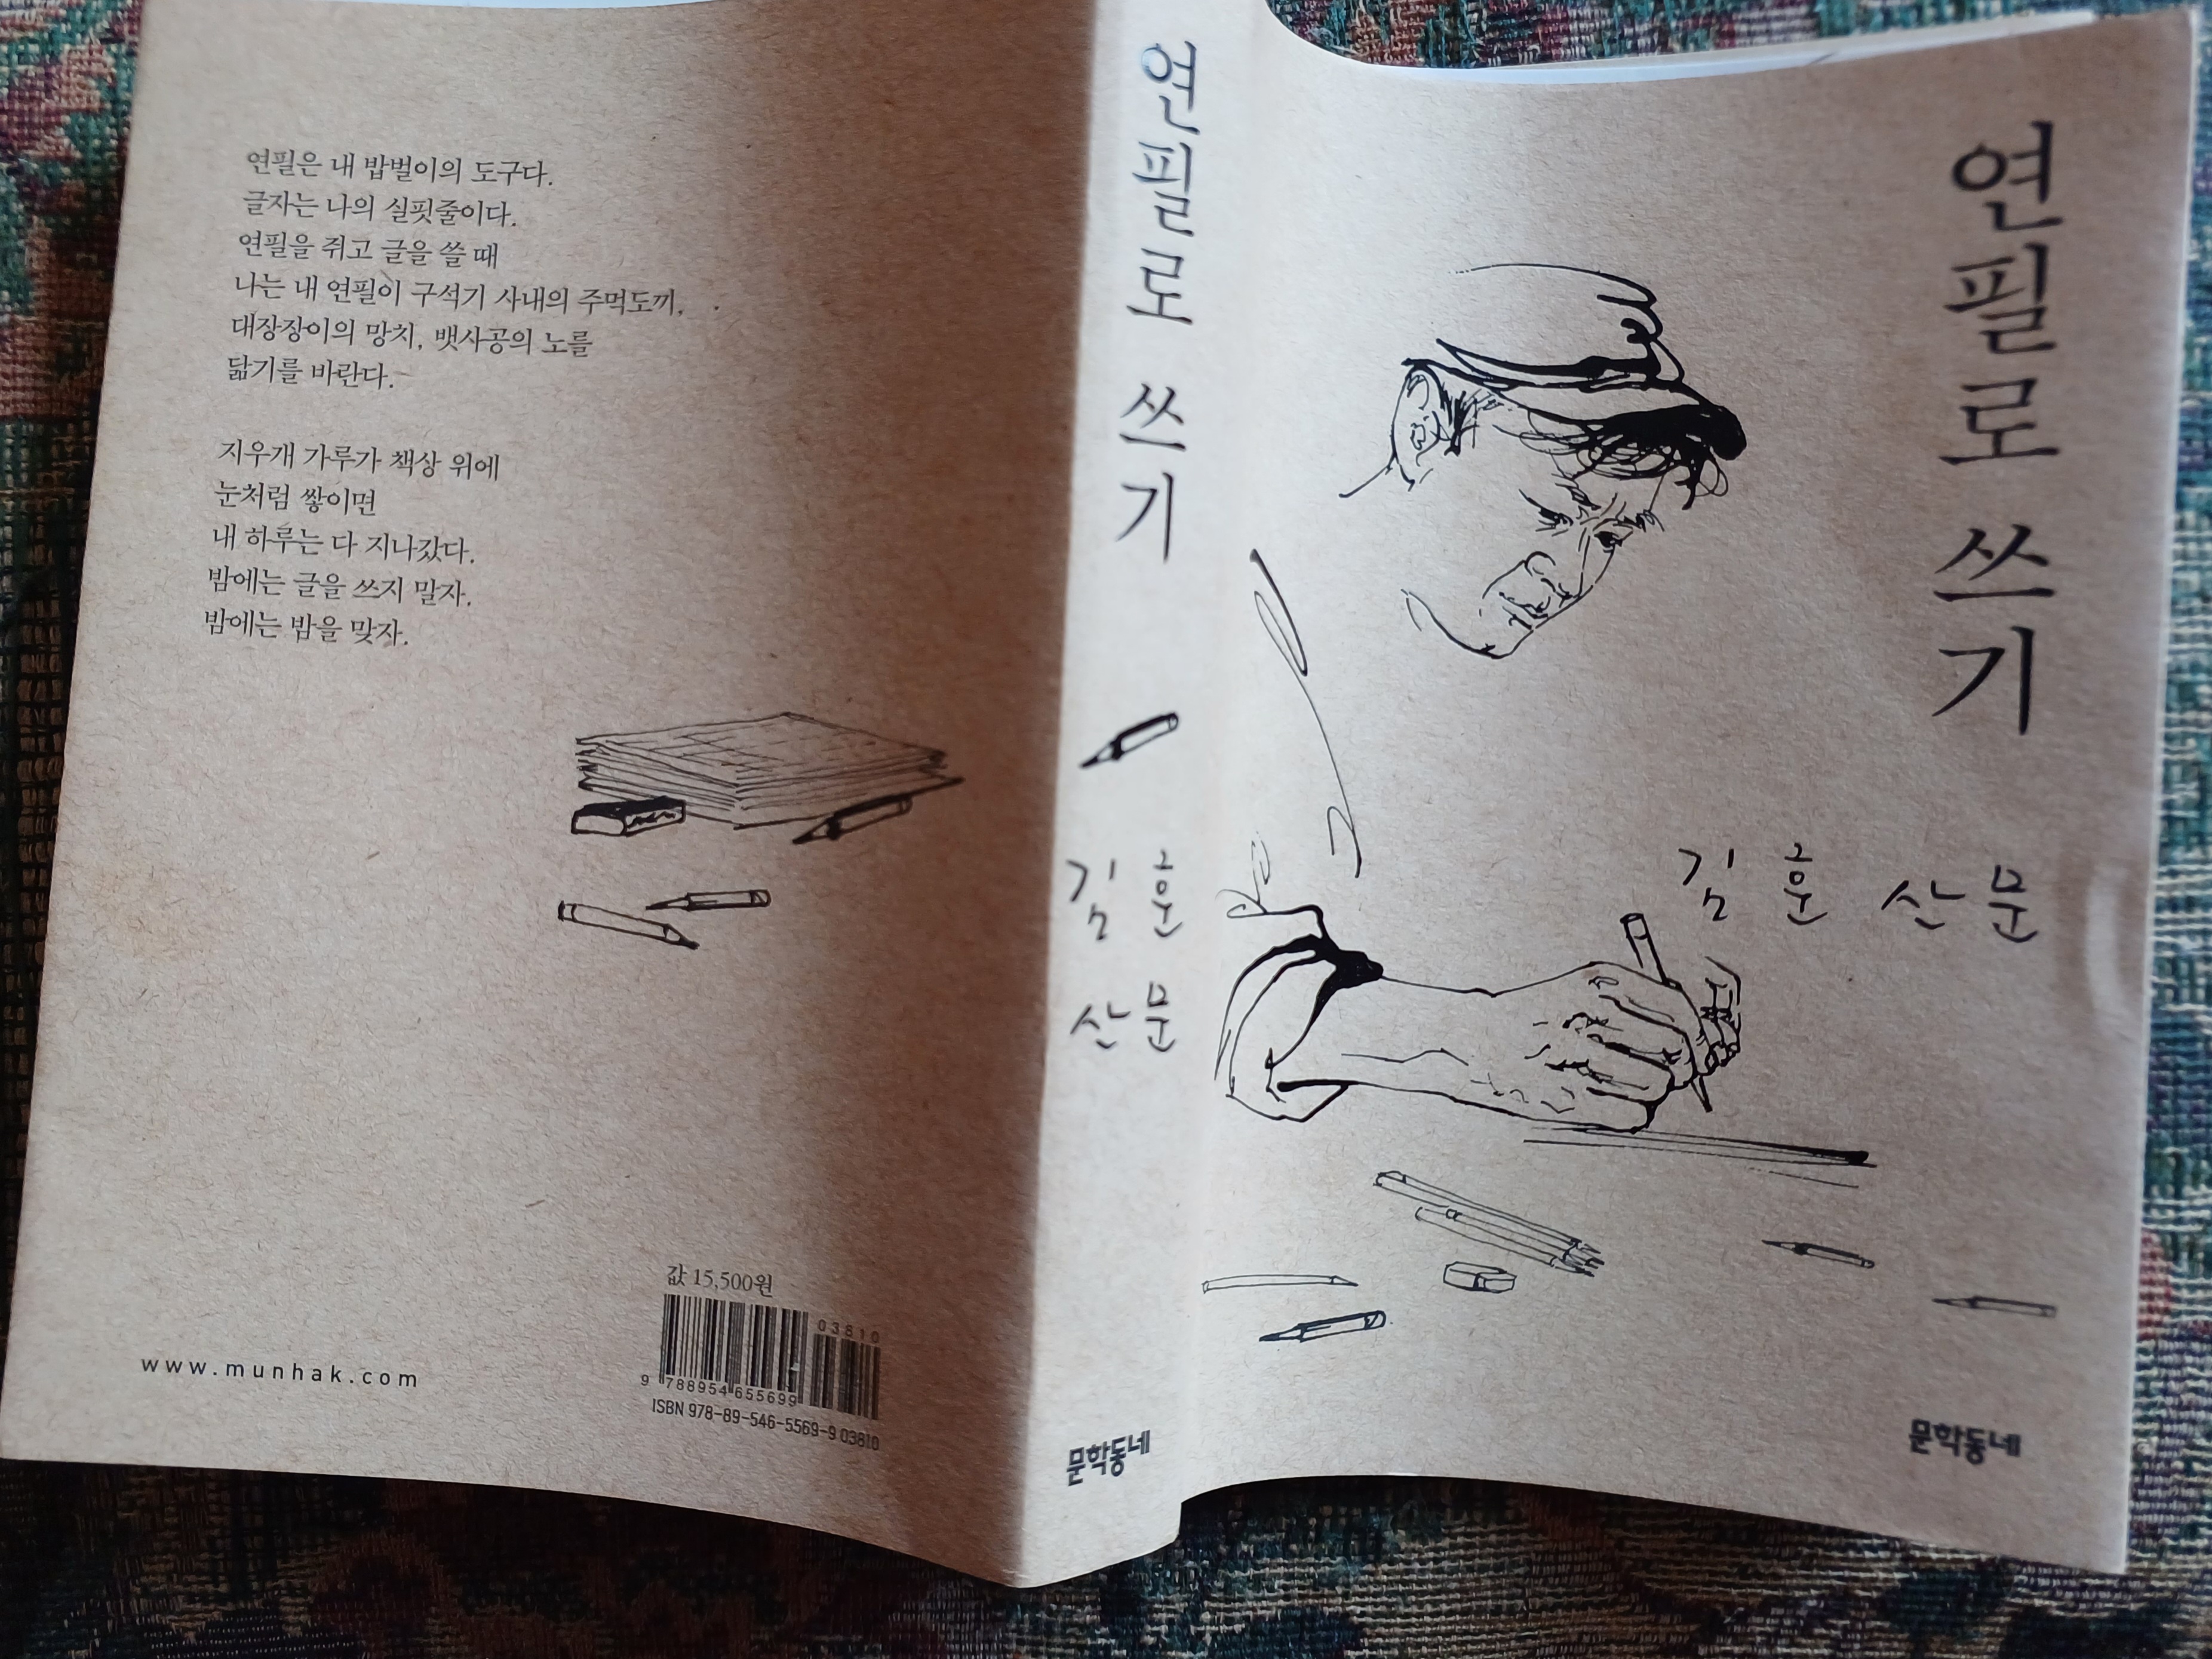 연필은 내 밥벌이의 도구다.
글자는 나의 실핏줄이다.
연필을 쥐고 글을 쓸 때
나는 내 연필이 구석기 사내의 주먹도끼,
대장장이의 망치, 뱃사공의 노를
닮기를 바란다.
지우개 가루가 책상 위에
눈처럼 쌓이면
내 하루는 다 지나갔다.
밤에는 글을 쓰지 말자.
밤에는 밤을 맞자.
값 15,500원
03810
9 788954 655699
ISBN 978-89-546-5569-9 03810
www.munhak.com
연필로 쓰기
김훈
산문
문학동네
연필로 쓰기
김훈 산문
문학동네